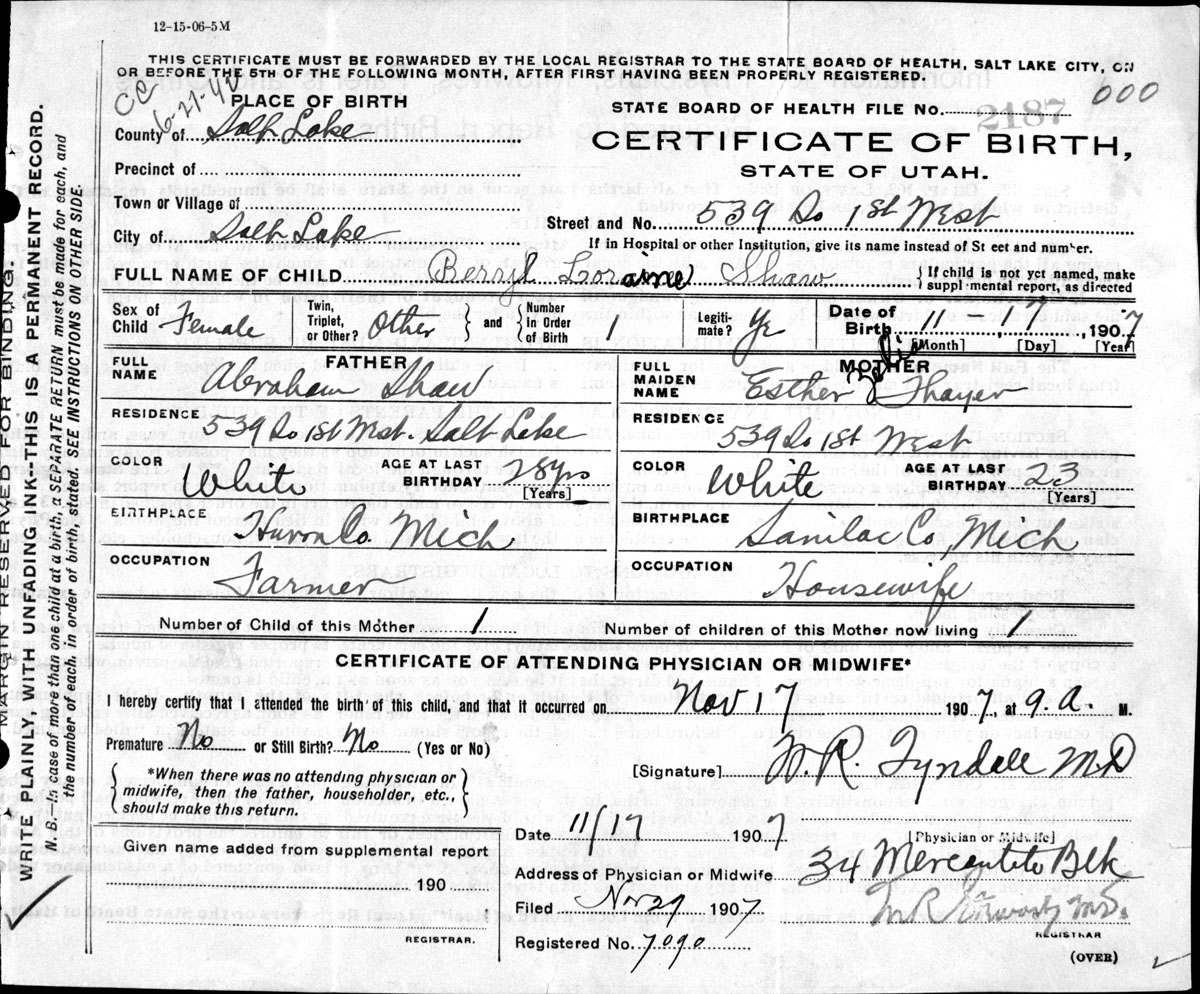 12-15-06-5M
THIS CERTIFICATE MUST BE FORWARDED BY THE LOCAL REGISTRAR TO THE STATE BOARD OF HEALTH, SALT LAKE CITY, ON
OR BEFORE THE 5TH OF THE FOLLOWING MONTH, AFTER FIRST HAVING BEEN PROPERLY REGISTERED.
CC 6-27-42
PLACE OF BIRTH
STATE BOARD OF HEALTH FILE No. 2187 600
County of Salt Lake
CERTIFICATE OF BIRTH,
STATE OF UTAH.
Precinct of
Town or Village of
Street and No. 539 So 1st West
City of Salt Lake
If in Hospital or other Institution, give its name instead of St eet and number.
FULL NAME OF CHILD Berryl Loraine Shaw { If child is not yet named, make
suppl mental report, as directed
Sex of Child Female Twin, Triplet, or Other? Other } and { Number In Order of Birth 1 Legiti-mate? Ye Date of Birth 11 - 17, 1907
[Month] [Day] [Year]
FULL NAME FATHER Abraham Shaw
FULL MAIDEN NAME MOTHER Esther Thayer
RESIDENCE 539 So 1st West. Salt Lake
RESIDENCE 539 So 1st West
COLOR White AGE AT LAST BIRTHDAY 28 yrs [Years]
COLOR White AGE AT LAST BIRTHDAY 23 [Years]
BIRTHPLACE Huron Co. Mich
BIRTHPLACE Sanilac Co, Mich
OCCUPATION Farmer
OCCUPATION Housewife
Number of Child of this Mother 1 Number of children of this Mother now living 1
CERTIFICATE OF ATTENDING PHYSICIAN OR MIDWIFE*
I hereby certify that I attended the birth of this child, and that it occurred on Nov 17 1907, at 9. a. M.
Premature No or Still Birth? No (Yes or No)
[Signature] W. R. Tyndale MD
{ *When there was no attending physician or
midwife, then the father, householder, etc.,
should make this return. }
[Physician or Midwife]
Date 11/17 1907
Given name added from supplemental report
190
REGISTRAR.
Address of Physician or Midwife 34 Mercantile Blk
Filed Nov 29 1907
M.D.
REGISTRAR
Registered No. 7090
(OVER)
MARGIN RESERVED FOR BINDING.
WRITE PLAINLY, WITH UNFADING INK-THIS IS A PERMANENT RECORD.
N. B.—In case of more than one child at a birth, a SEPARATE RETURN must be made for each, and
the number of each, in order of birth, stated. SEE INSTRUCTIONS ON OTHER SIDE.